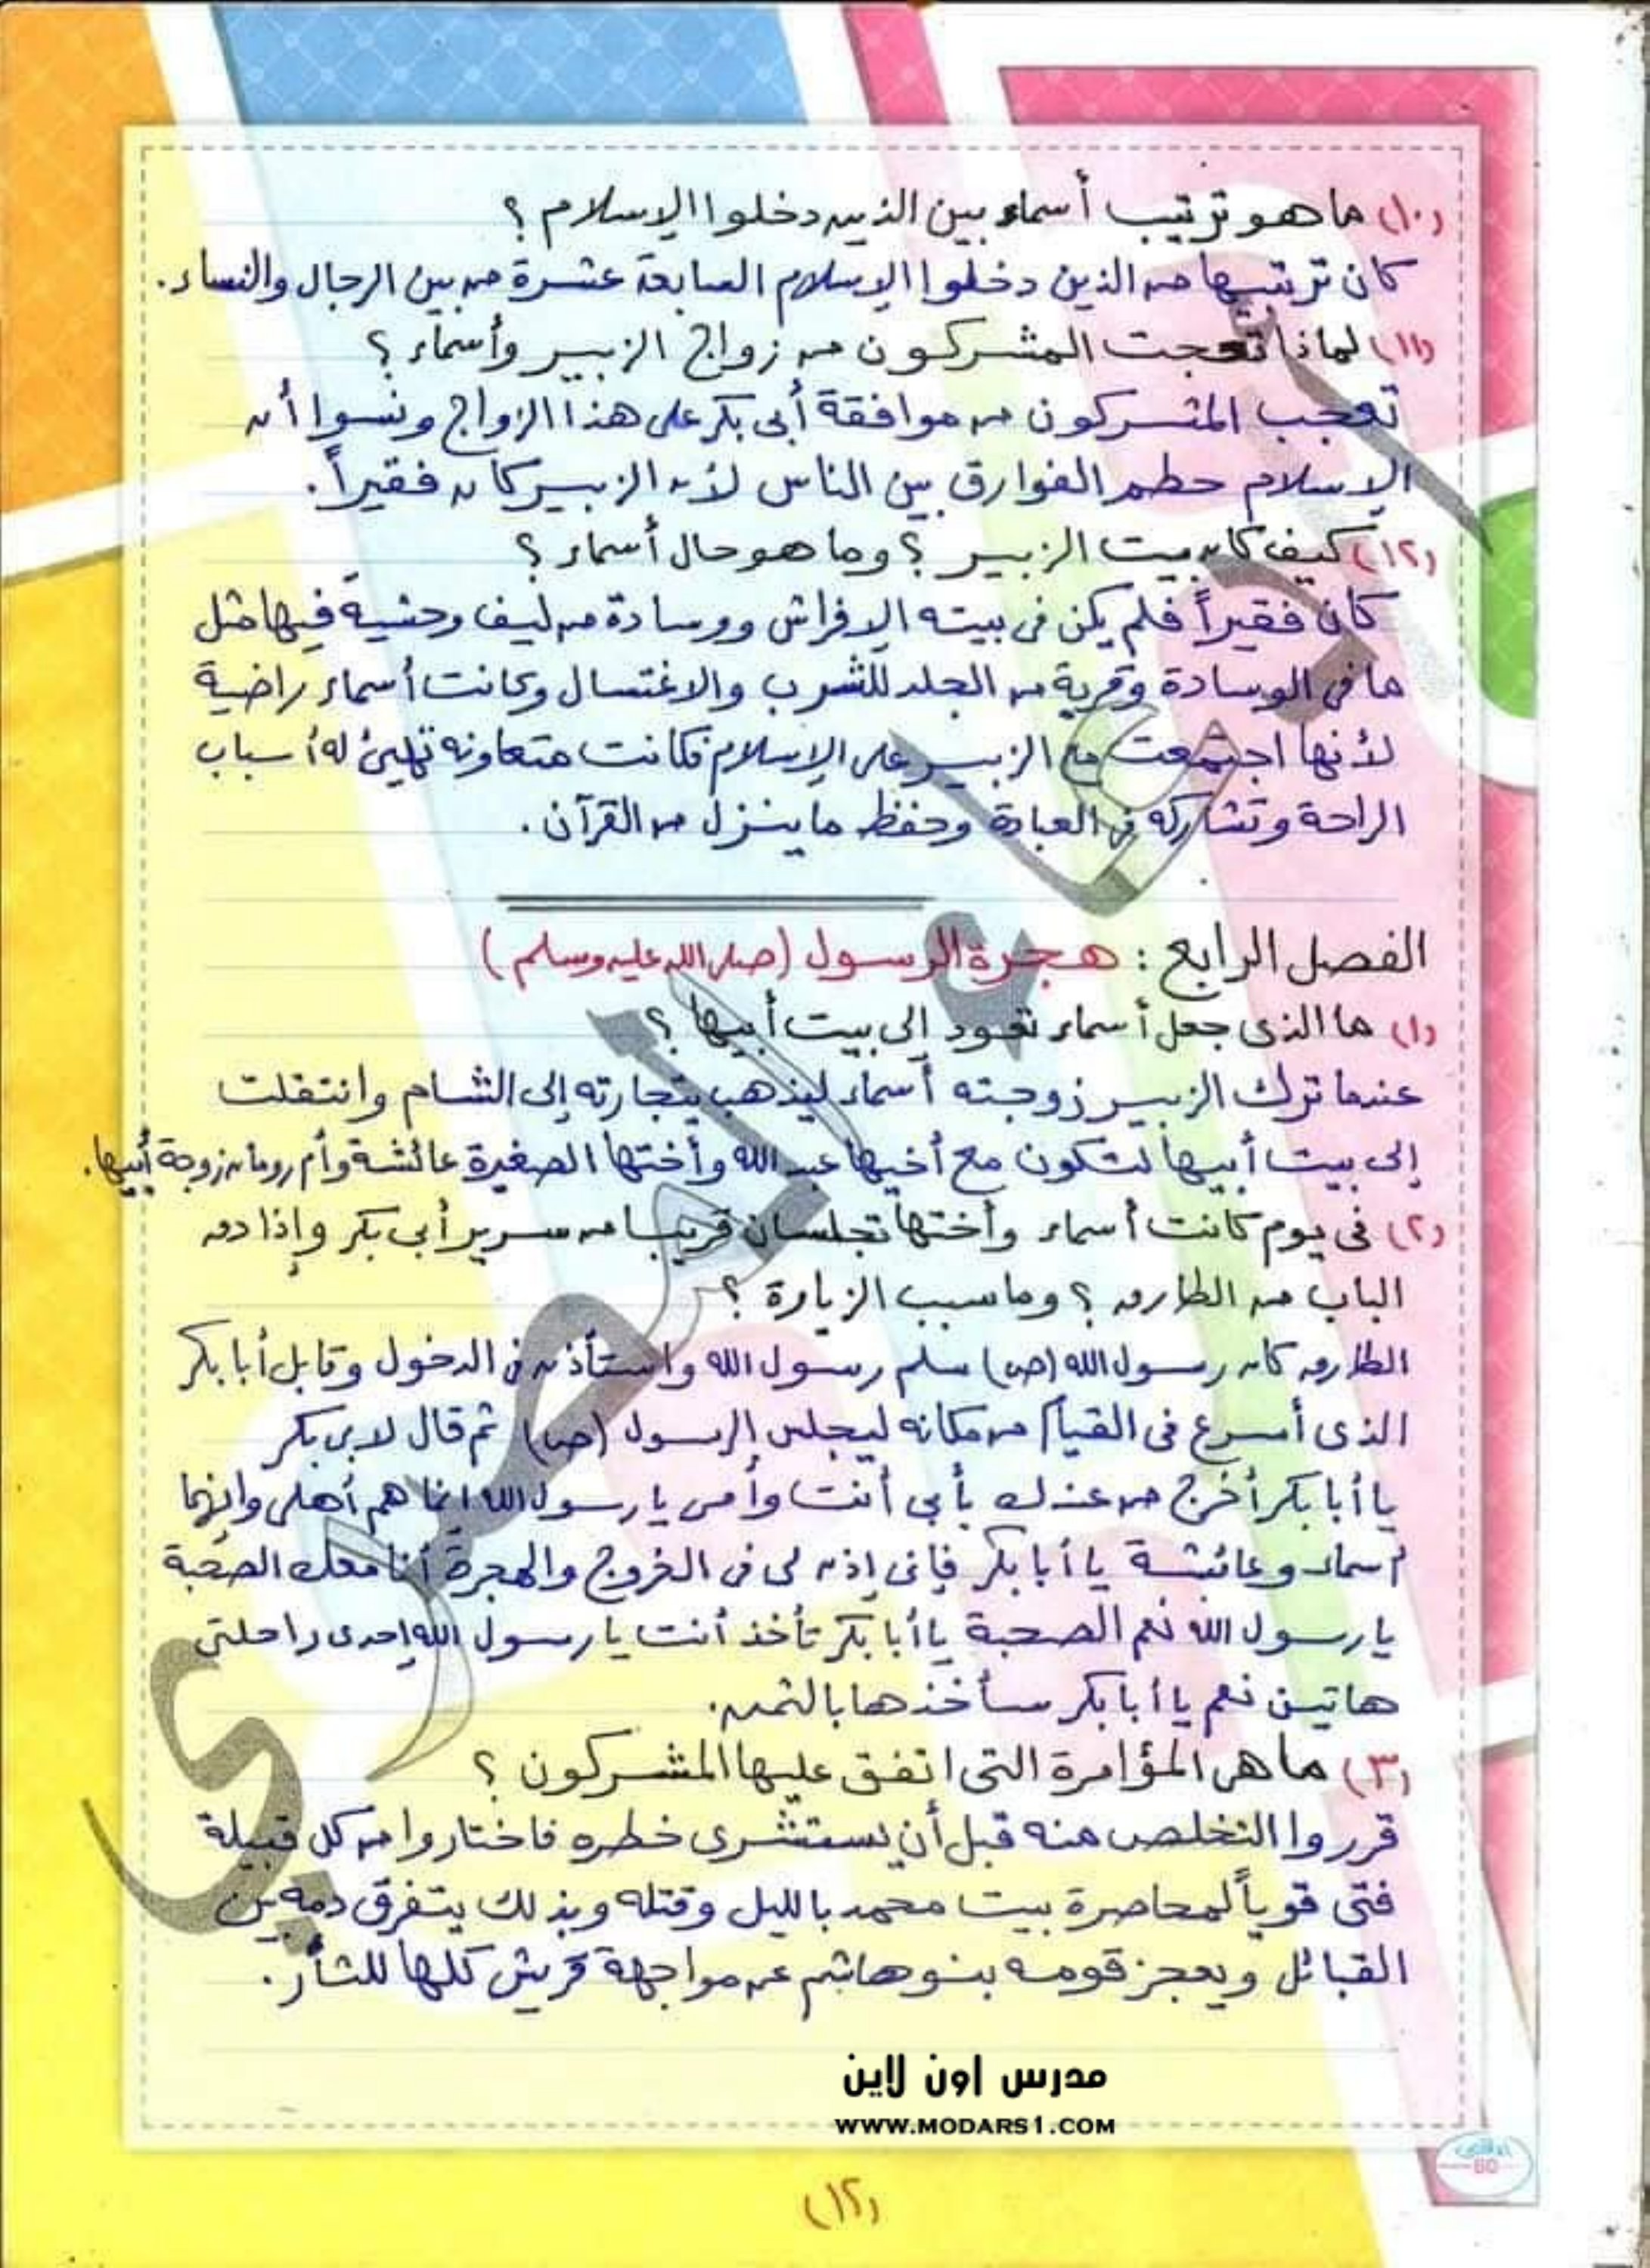 (١٠) ما هو ترتيب أسماء بين الذين دخلوا الإسلام ؟
كان ترتيبها من الذين دخلوا الإسلام السابعة عشرة من بين الرجال والنساء .
(١١) لماذا تعجبت المشركون من زواج الزبير وأسماء ؟
تعجب المشركون من موافقة أبى بكر على هذا الزواج ونسوا أن
الإسلام حطم الفوارق بين الناس لأن الزبير كان فقيراً .
(١٢) كيف كان بيت الزبير ؟ وما هو حال أسماء ؟
كان فقيراً فلم يكن فى بيته إلا فراش ووسادة من ليف وحشية فيها مثل
ما فى الوسادة وقربة من الجلد للشرب والاغتسال وكانت أسماء راضية
لأنها اجتمعت مع الزبير على الإسلام فكانت متعاونه تهيئ له أسباب
الراحة وتشاركه فى العبادة وحفظ ما ينزل من القرآن .
الفصل الرابع : هجرة الرسول (صلى الله عليه وسلم)
(١) ما الذى جعل أسماء تعود إلى بيت أبيها ؟
عندما ترك الزبير زوجته أسماء ليذهب بتجارته إلى الشام وانتقلت
إلى بيت أبيها لتكون مع أخيها عبد الله وأختها الصغيرة عائشة وأم رومان زوجة أبيها .
(٢) فى يوم كانت أسماء وأختها تجلسان قريبا من سرير أبى بكر وإذا دق
الباب من الطارق ؟ وما سبب الزيارة ؟
الطارق كان رسول الله (ص) سلم رسول الله واستأذن فى الدخول وقابل أبا بكر
الذى أسرع فى القيام من مكانه ليجلس الرسول (ص) ثم قال لابى بكر
يا أبا بكر أخرج من عندك بأبى أنت وأمى يا رسول الله انما هم أهلى وانهما
أسماء وعائشة يا أبا بكر فإنى إذن لى فى الخروج والهجرة أنا معك الصحبة
يا رسول الله نعم الصحبة يا أبا بكر تأخذ أنت يا رسول الله إحدى راحلتى
هاتين نعم يا أبا بكر سأخذها بالثمن .
(٣) ما هى المؤامرة التى اتفق عليها المشركون ؟
قرروا التخلص منه قبل أن يستشرى خطره فاختاروا من كل قبيلة
فتى قوياً لمحاصرة بيت محمد بالليل وقتله وبذلك يتفرق دمه بين
القبائل ويعجز قومه بنو هاشم عن مواجهة قريش كلها للثأر .
مدرس اون لاين
WWW.MODARS1.COM
60
(١٢)